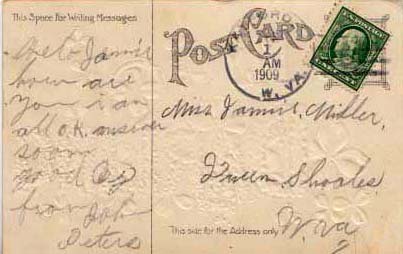 This Space For Writing Messages
POST CARD
1
AM
1909
W. VA.
Hello Jamie
how are
you I am
all O.K. answer
soon
good by
from John
Peters
Miss Jamie Miller,
Queen Shoales
W. Va
This side for the Address only